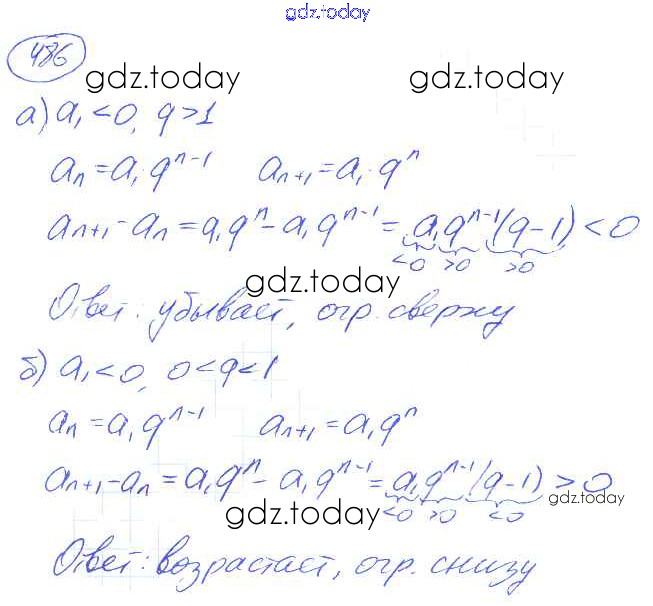 gdz.today
486
gdz.today gdz.today
а) a₁ < 0, q > 1
aₙ = a₁ qⁿ⁻¹ aₙ₊₁ = a₁ · qⁿ
aₙ₊₁ - aₙ = a₁qⁿ - a₁qⁿ⁻¹ = a₁qⁿ⁻¹(q-1) < 0
<0 >0 >0
gdz.today
Ответ: убывает, огр. сверху
б) a₁ < 0, 0 < q < 1
aₙ = a₁qⁿ⁻¹ aₙ₊₁ = a₁qⁿ
aₙ₊₁ - aₙ = a₁qⁿ - a₁qⁿ⁻¹ = a₁qⁿ⁻¹(q-1) > 0
gdz.today
<0 >0 <0
gdz.today
Ответ: возрастает, огр. снизу